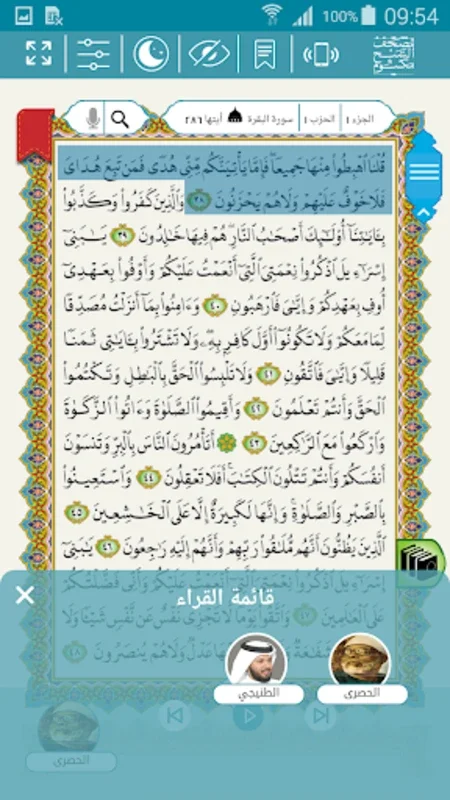 100% 09:54
الجزء ١ الحزب ١ سورة البقرة آيتها ٢٨٦
قُلْنَا ٱهْبِطُوا۟ مِنْهَا جَمِيعًا فَإِمَّا يَأْتِيَنَّكُم مِّنِّى هُدًى فَمَن تَبِعَ هُدَاىَ
فَلَا خَوْفٌ عَلَيْهِمْ وَلَا هُمْ يَحْزَنُونَ ٣٨ وَٱلَّذِينَ كَفَرُوا۟ وَكَذَّبُوا۟
بِـَٔايَـٰتِنَآ أُو۟لَـٰٓئِكَ أَصْحَـٰبُ ٱلنَّارِ هُمْ فِيهَا خَـٰلِدُونَ ٣٩ يَـٰبَنِىٓ
إِسْرَٰٓءِيلَ ٱذْكُرُوا۟ نِعْمَتِىَ ٱلَّتِىٓ أَنْعَمْتُ عَلَيْكُمْ وَأَوْفُوا۟ بِعَهْدِىٓ
أُوفِ بِعَهْدِكُمْ وَإِيَّـٰىَ فَٱرْهَبُونِ ٤٠ وَءَامِنُوا۟ بِمَآ أَنزَلْتُ مُصَدِّقًا
لِّمَا مَعَكُمْ وَلَا تَكُونُوٓا۟ أَوَّلَ كَافِرٍۭ بِهِۦ وَلَا تَشْتَرُوا۟ بِـَٔايَـٰتِى ثَمَنًا
قَلِيلًا وَإِيَّـٰىَ فَٱتَّقُونِ ٤١ وَلَا تَلْبِسُوا۟ ٱلْحَقَّ بِٱلْبَـٰطِلِ وَتَكْتُمُوا۟
ٱلْحَقَّ وَأَنتُمْ تَعْلَمُونَ ٤٢ وَأَقِيمُوا۟ ٱلصَّلَوٰةَ وَءَاتُوا۟ ٱلزَّكَوٰةَ
وَٱرْكَعُوا۟ مَعَ ٱلرَّٰكِعِينَ ٤٣ أَتَأْمُرُونَ ٱلنَّاسَ بِٱلْبِرِّ وَتَنسَوْنَ
أَنفُسَكُمْ وَأَنتُمْ تَتْلُونَ ٱلْكِتَـٰبَ أَفَلَا تَعْقِلُونَ ٤٤ وَٱسْتَعِينُوا۟
بِٱلصَّبْرِ وَٱلصَّلَوٰةِ وَإِنَّهَا لَكَبِيرَةٌ إِلَّا عَلَى ٱلْخَـٰشِعِينَ ٤٥
ٱلَّذِينَ يَظُنُّونَ أَنَّهُم مُّلَـٰقُوا۟ رَبِّهِمْ وَأَنَّهُمْ إِلَيْهِ رَٰجِعُونَ ٤٦ يَـٰبَنِىٓ
إِسْرَٰٓءِيلَ ٱذْكُرُوا۟ نِعْمَتِىَ ٱلَّتِىٓ أَنْعَمْتُ عَلَيْكُمْ وَأَنِّى فَضَّلْتُكُمْ
عَلَى ٱلْعَـٰلَمِينَ ٤٧ وَٱتَّقُوا۟ يَوْمًا لَّا تَجْزِى نَفْسٌ عَن نَّفْسٍ شَيْـًٔا وَلَا
شَفَـٰعَةٌ عَدْلٌ وَلَا هُمْ يُنصَرُونَ ٤٨
قائمة القراء
الحصرى
الطنيجي
الحصرى